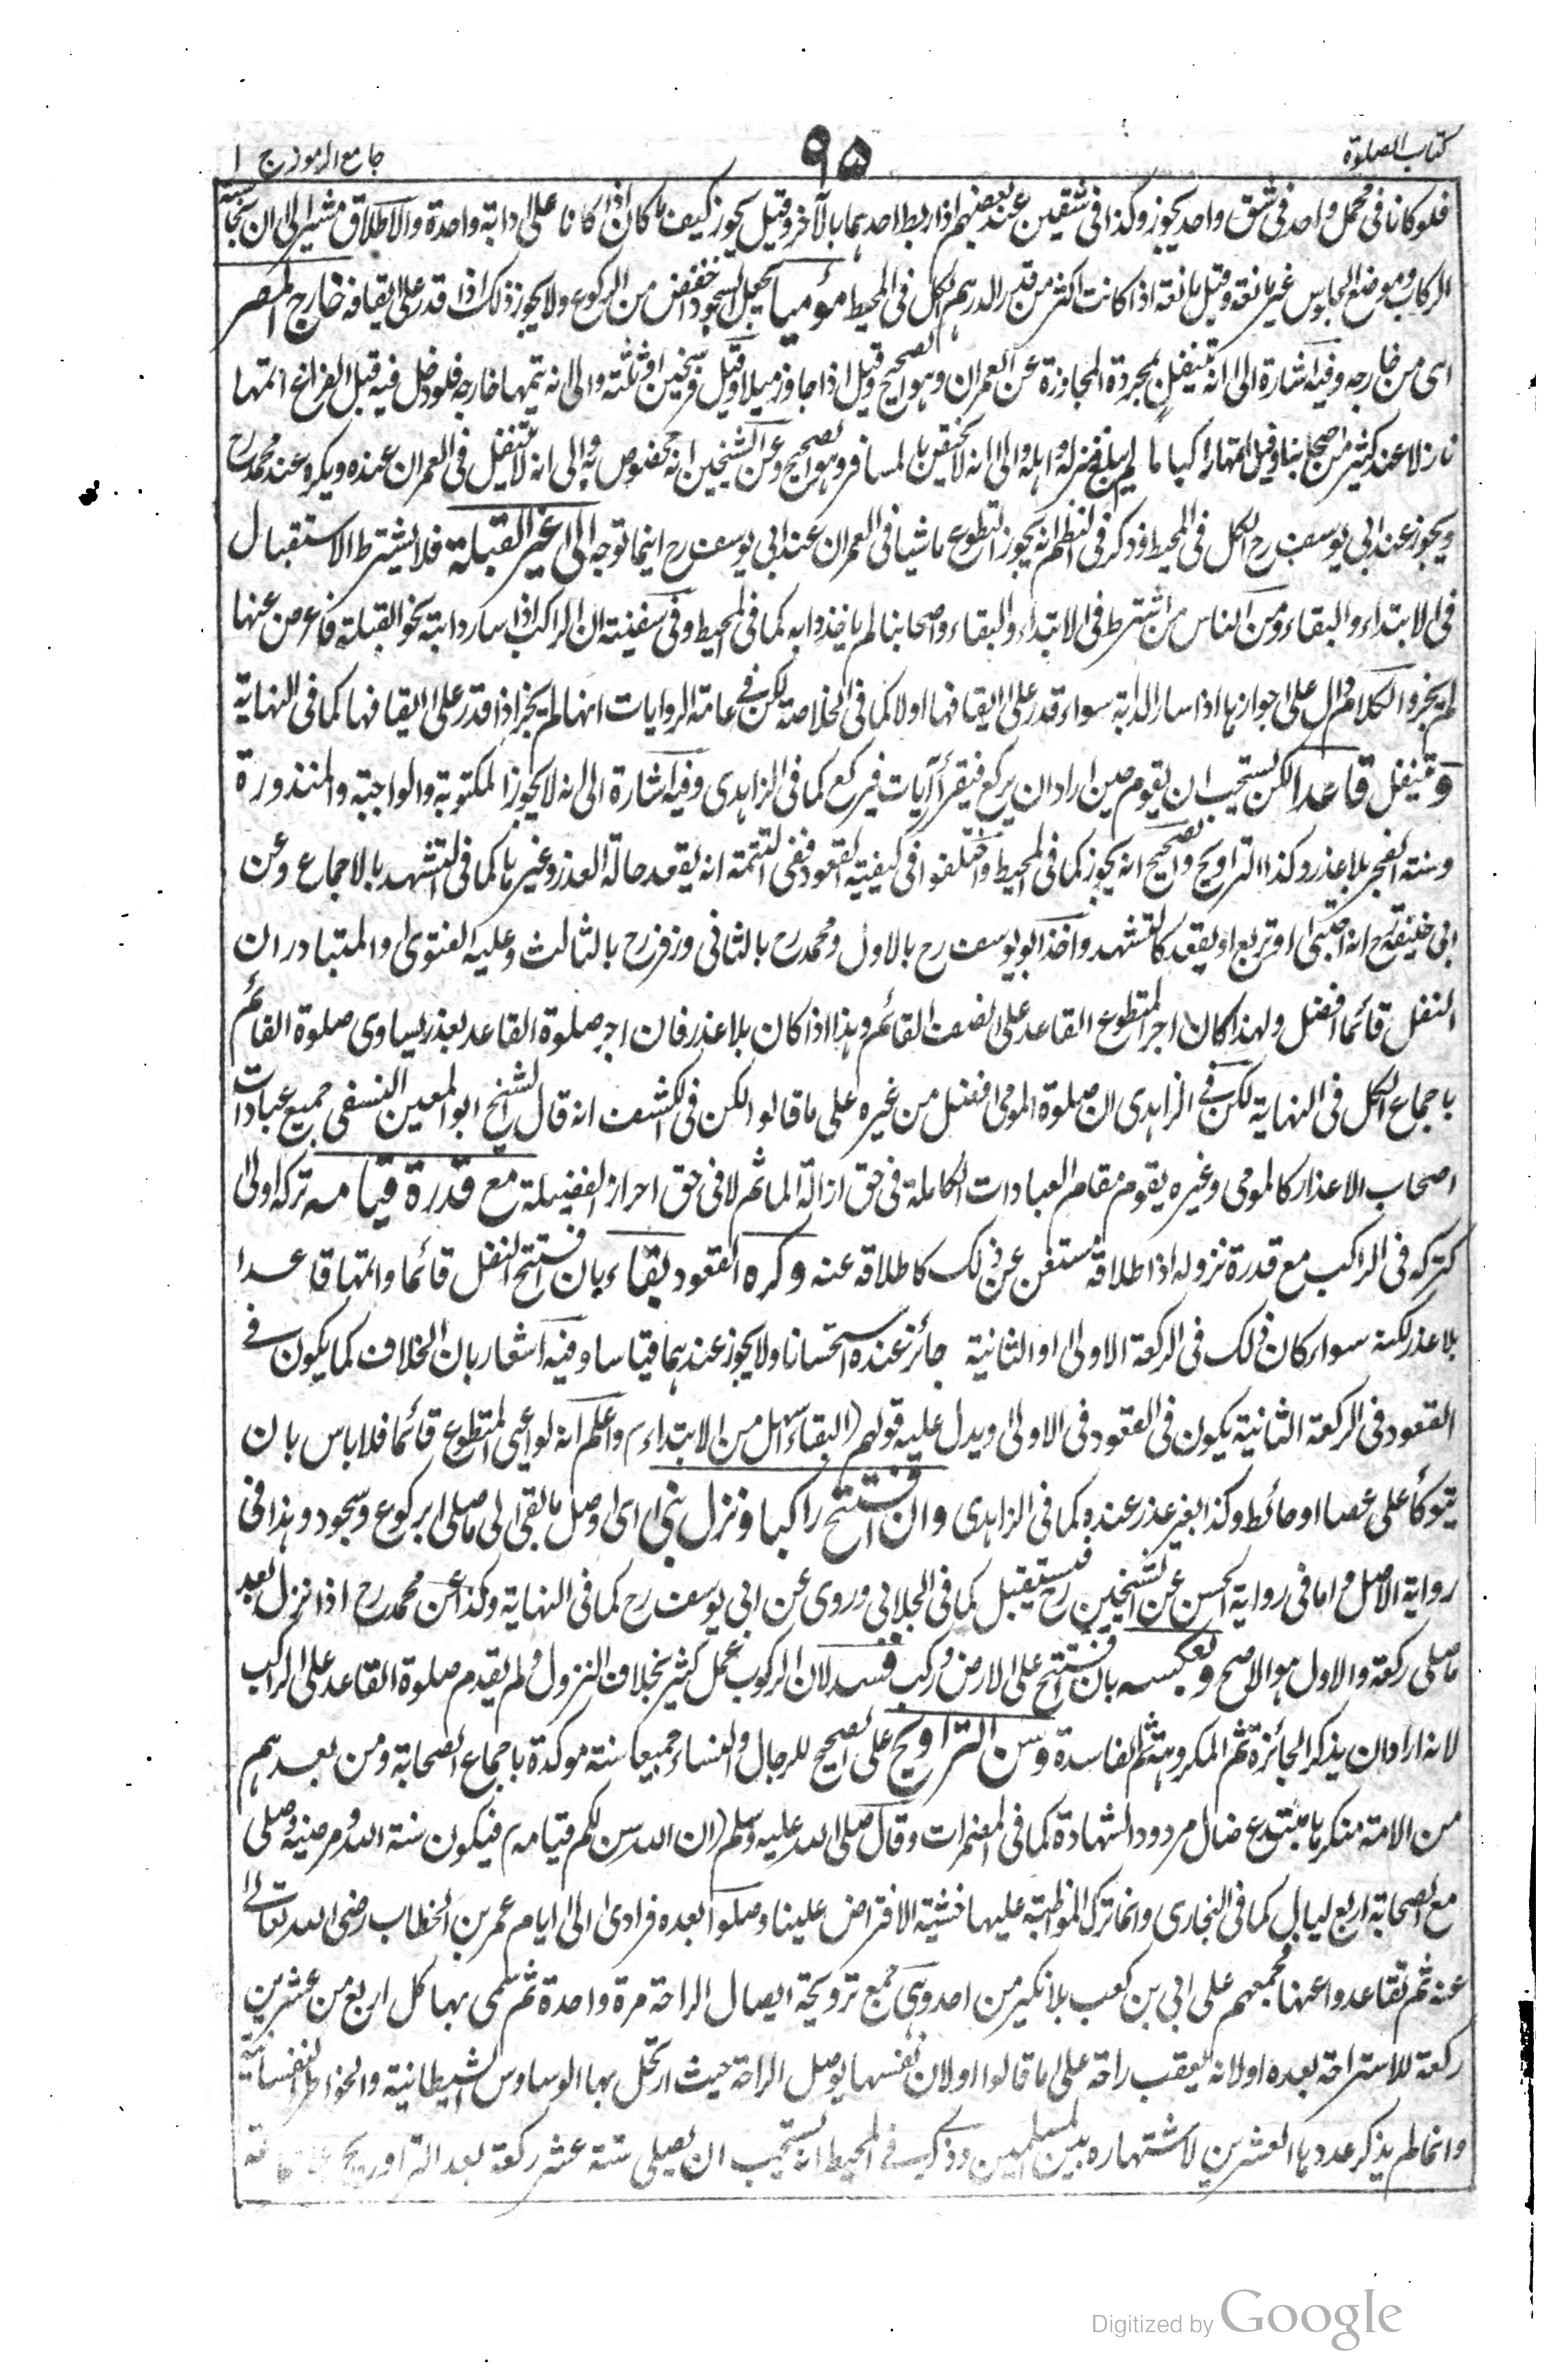 كتاب الصلوة
٩٥
جامع الرموز ج ١
فلو كانا فى محمل واحد فى شق واحد يجوز وكذا فى شقين عند بعضهم اذا ربط احدهما بالآخر وقيل يجوز كيف ما كان اذا كانا على دابة واحدة والاطلاق مشير الى ان نجاسة
الركاب وموضع الجلوس غير مانعة وقيل مانعة اذا كانت اكثر من قدر الدرهم الكل فى المحيط مؤميا يجعل السجود اخفض من الركوع ولا يجوز ذلك اذا قدر على ايقافه خارج المصر
اى من خارجه وفيه اشارة الى انه يتنفل لمجردة المجاوزة عن العمران وهو الصحيح وقيل اذا جاوز ميلا وقيل فرسخين او ثلثة والى انه يتمها خارجه فلو دخل فيه قبل الفراغ اتمها
نازلا عند كثير من اصحابنا وقيل اتمها راكبا ما لم يبلغ منزله واهله والى انه لا يختص بالمسافر وهو الصحيح وعن الشيخين انه مخصوص به والى انه لا يتنفل فى العمران عنده ويكره عند محمد رح
ويجوز عند ابى يوسف رح الكل فى المحيط وذكر فى النظم انه يجوز التطوع ماشيا فى العمران عند ابى يوسف رح اينما توجه الى غير القبلة فلا يشترط الاستقبال
فى الابتداء والبقاء ومن الناس من اشترط فى الابتداء والبقاء واصحابنا لم ياخذوا به كما فى المحيط وفى سفينته ان الراكب اذا سار دابته نحو القبلة فاعرض عنها
لم يجز والكلام دال على جوازها اذا سار الدابة سواء قدر على ايقافها اولا كما فى الخلاصة لكن فى عامة الروايات انها لم يجز اذا قدر على ايقافها كما فى النهاية
ويتنفل قاعدا لكن يستحب ان يقوم حين اراد ان يركع فيقرأ آيات فيركع كما فى الزاهدى وفيه اشارة الى انه لا يجوز المكتوبة والواجبة والمنذورة
وسنة الفجر بلا عذر وكذا التراويح والصحيح انه يجوز كما فى المحيط واختلفوا فى كيفية القعود ففى التتمة انه يقعد حالة العذر وغيرها كما فى التشهد بالاجماع وعن
ابى حنيفة رح انه احتبى او تربع او يقعد كالتشهد واخذ ابو يوسف رح بالاول ومحمد رح بالثانى وزفر رح بالثالث وعليه الفتوى والمتبادر ان
النفل قائما افضل ولهذا كان اجر المتطوع القاعد على نصف القائم وهذا اذا كان بلا عذر فان اجر صلوة القاعد بعذر يساوى صلوة القائم
باجماع الكل فى النهاية لكن فى الزاهدى ان صلوة المومى افضل من غيره على ما قالوا لكن فى الكشف انه قال الشيخ ابو المعين النسفى جميع عبادات
اصحاب الاعذار كالمومى وغيره يقوم مقام العبادات الكاملة فى حق ازالة الماثم لا فى حق احراز الفضيلة مع قدرة قيامه تركه اولى
كتركه فى الراكب مع قدرة نزوله اذا اطلاقه مستغن عن ذلك كاطلاقه عنه وكره القعود بقاء بان افتتح النفل قائما واتمها قاعدا
بلا عذر لكنه سواء كان ذلك فى الركعة الاولى او الثانية جائز عنده استحسانا ولا يجوز عندهما قياسا وفيه اشعار بان الخلاف كما يكون فى
القعود فى الركعة الثانية يكون فى القعود فى الاولى ويدل عليه قولهم (البقاء اسهل من الابتداء) واعلم انه لو اعيى المتطوع قائما فلا باس بان
يتوكأ على عصا او حائط وكذا بغير عذر عنده كما فى الزاهدى وان افتتح راكبا ونزل بنى اى اوصل ما بقى الى ما صلى بركوع وسجود وهذا فى
رواية الاصل واما فى رواية الحسن عن الشيخين رح فيستقبل كما فى الجلابى وروى عن ابى يوسف رح كما فى النهاية وكذا عن محمد رح اذا نزل بعد
ما صلى ركعة والاول هو الاصح وبعكسه بان افتتح على الارض وركب فسد لان الركوب عمل كثير بخلاف النزول ولم يقدم صلوة القاعد على الراكب
لانه اراد ان يذكر الجائزة ثم المكروهة ثم الفاسدة وسن التراويح على الصحيح للرجال والنساء جميعا سنة موكدة باجماع الصحابة ومن بعدهم
من الامة منكرها مبتدع ضال مردود الشهادة كما فى المضمرات وقال صلى الله عليه وسلم (ان الله سن لكم قيامه) فيكون سنة الله ومرضيه وصلى
مع الصحابة اربع ليال كما فى البخارى وانما ترك المواظبة عليها خشية الافتراض علينا وصلوا بعده فرادى الى ايام عمر بن الخطاب رضى الله تعالى
عنه ثم تقاعدوا عنها فجمعهم على ابى بن كعب بلا نكير من احد وهى جمع ترويحة ايصال الراحة مرة واحدة ثم سمى بها كل اربع من عشرين
ركعة للاستراحة بعده او لانه يعقب راحة على ما قالوا او لان نفسها يوصل الراحة حيث ارتحل بها الوساوس الشيطانية والخواطر النفسانية
وانما لم يذكر عددها العشرين لاشتهاره بين المسلمين وذكر فى المحيط انه يستحب ان يصلى ستة عشر ركعة بعد التراويح
Digitized by Google